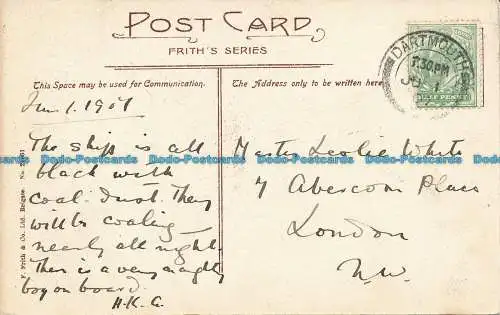 POST CARD
FRITH'S SERIES
This Space may be used for Communication.
The Address only to be written here
DARTMOUTH
7.30 PM
HALF PENNY
1. 1907
The ship is all
black with
coal dust. They
will be coaling
nearly all night.
There is a very naughty
boy on board.
H.K.G.
Master Leslie White
7 Abercorn Place
London
N.W.
F. Frith & Co. Ltd. Reigate. No.
Dodo-Postcards Dodo-Postcards Dodo-Postcards Dodo-Postcards